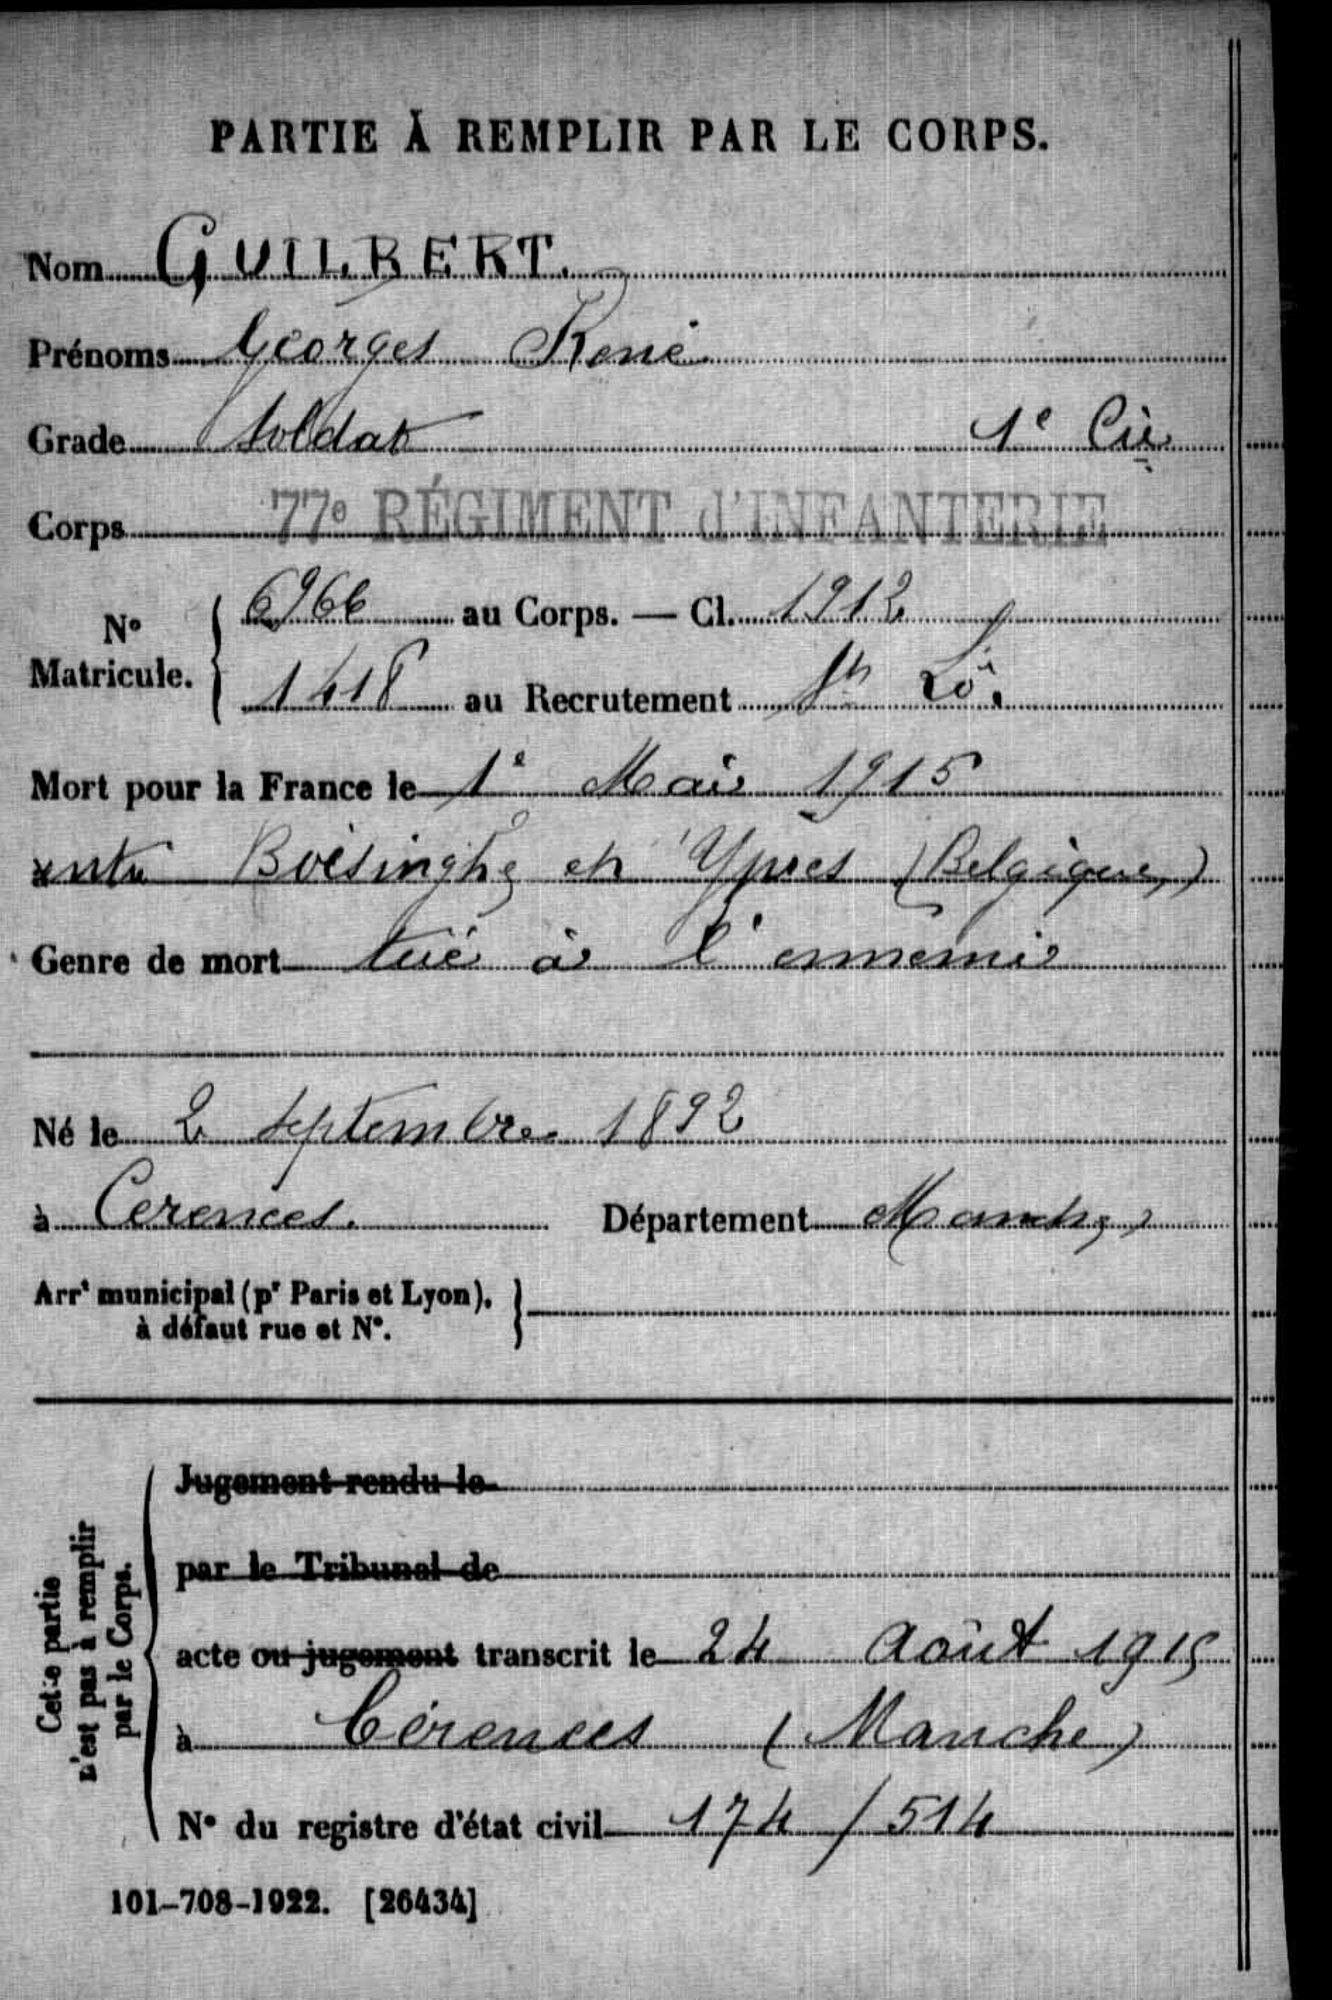 PARTIE À REMPLIR PAR LE CORPS.
Nom GUILBERT.
Prénoms Georges René
Grade Soldat 1e Cie
Corps 77e RÉGIMENT d'INFANTERIE
No Matricule. { 6966 au Corps. — Cl. 1912
1418 au Recrutement St Lô.
Mort pour la France le 1e Mai 1915
entre Boesinghe et Ypres (Belgique)
Genre de mort tué à l'ennemi
Né le 2 Septembre 1892
à Cerences. Département Manche
Arrt municipal (pr Paris et Lyon), à défaut rue et No. }
Cette partie n'est pas à remplir par le Corps.
Jugement rendu le
par le Tribunal de
acte ou jugement transcrit le 24 Août 1915
à Cérences (Manche)
No du registre d'état civil 174/514
101-708-1922. [26434]